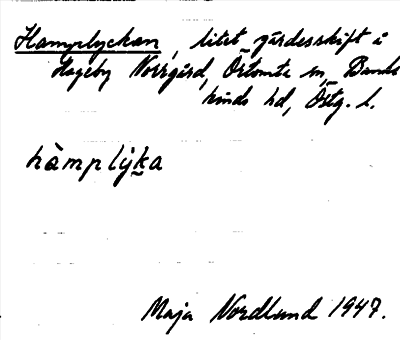 Hamplyckan, litet gärdesskift i
Hageby Norrgård, Örtomta sn, Bank-
kinds hd, Östg. l.
hàmplýka
Maja Nordlund 1947.